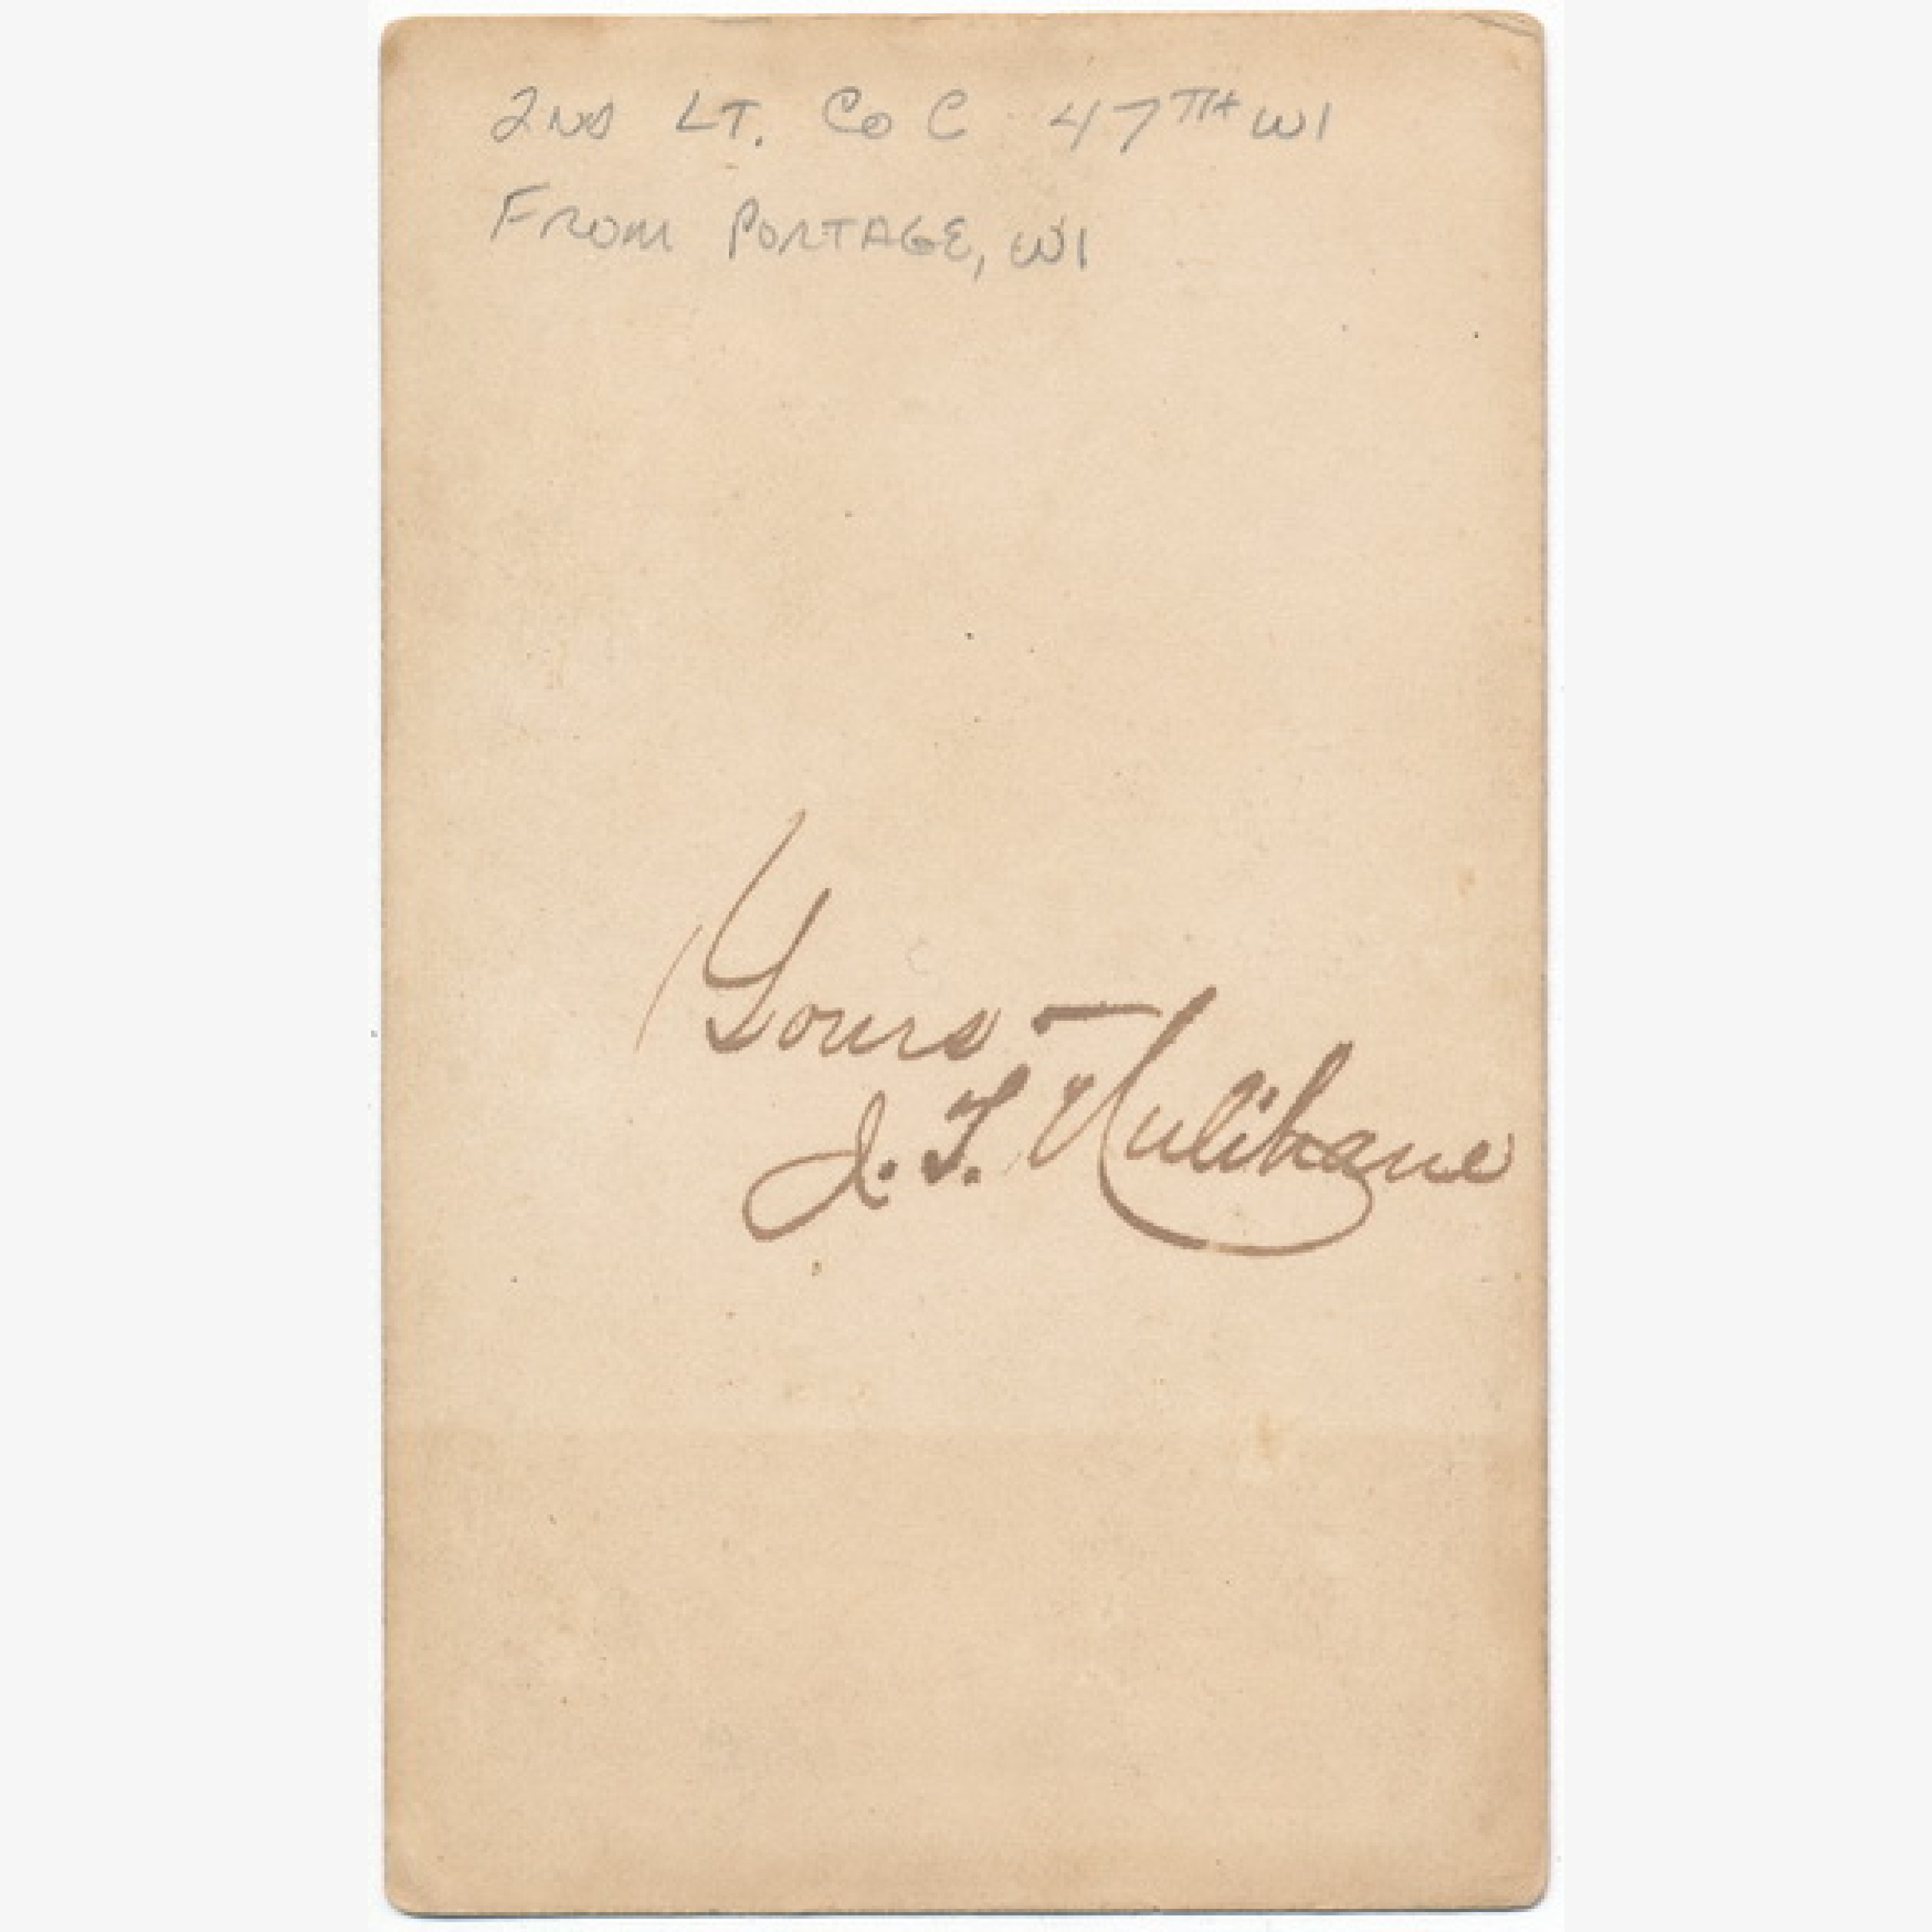 2ND LT. Co C 47TH WI
FROM PORTAGE, WI
Yours –
J. T.